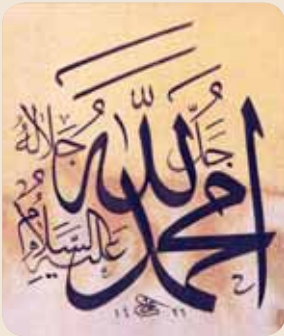 الله جَلَّ جَلَالُهُ
محمد عَلَيْهِ السَّلَامُ